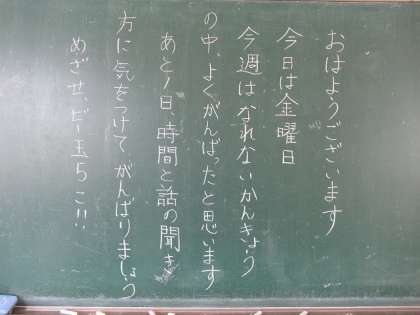 おはようございます
今日は金曜日
今週はなれないかんきょう
の中、よくがんばったと思います
あと1日、時間と話の聞き
方に気をつけてがんばりましょう
めざせ、ビー玉5こ!!